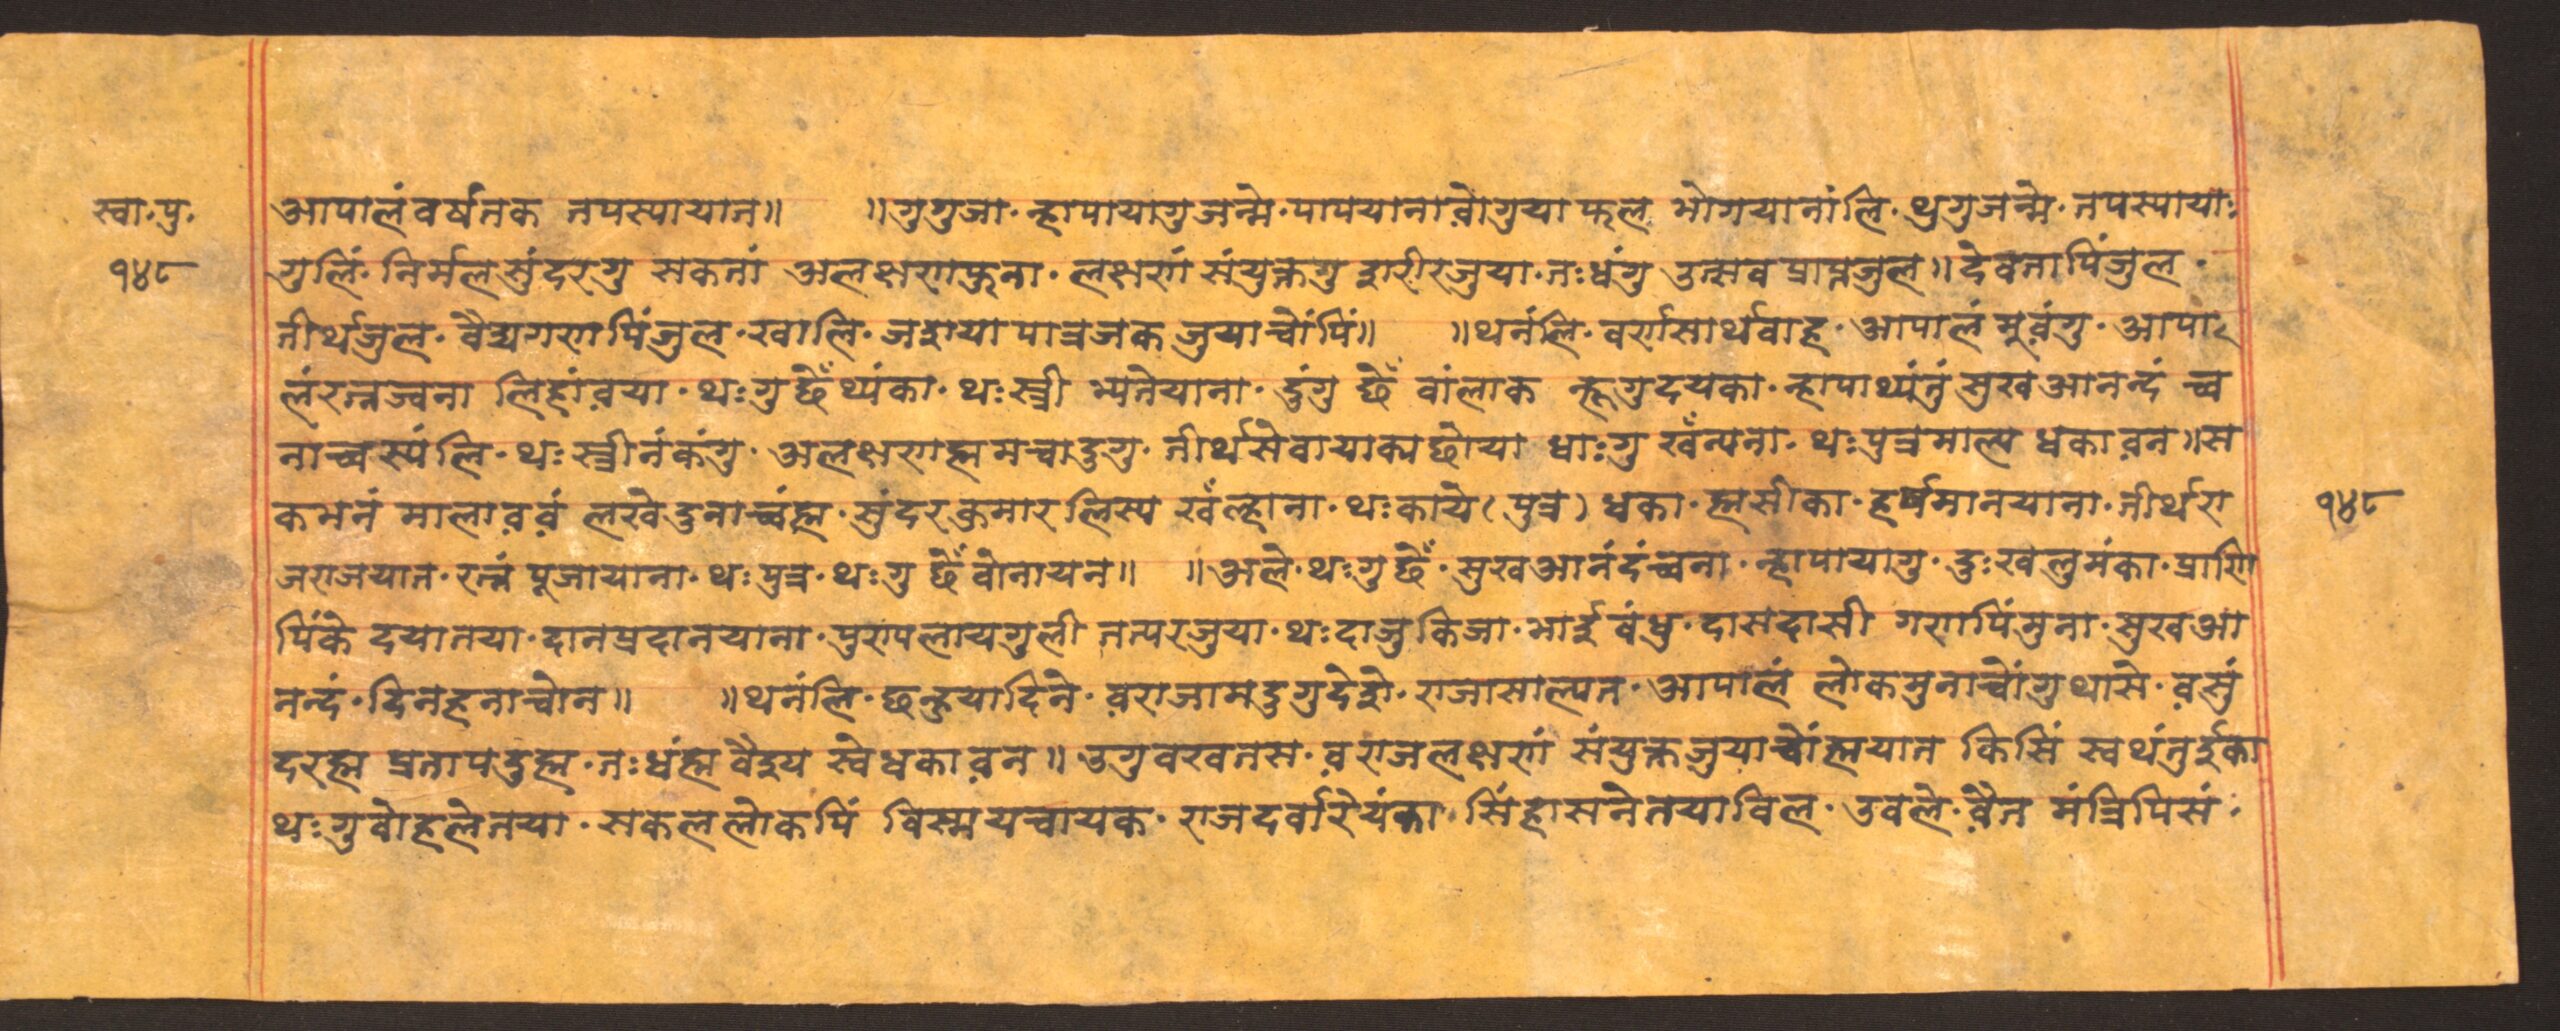 स्वा.पु.
१४८
आपालंवर्षतक तपस्यायात॥ ॥गुगुजा.न्हापायागुजन्मे.पापयानावो़गुया फल भोगयानांलि.थुगुजन्मे.तपस्यायाः
गुलिं.निर्मलसुंदरगु सकतां अलक्षणफुना.लक्षणं संयुक्तगु शरीरजुया.तःधंगु उत्सव प्राप्तजुल॥देवतापिंजुल.
तीर्थजुल.वैद्यगणपिंजुल.स्वालि.जशयापात्रजक जुयाच्वोंपिं॥ ॥थनंलि.वर्णसार्थवाह.आपालं मूव़ंगु.आपा
लंरत्नज्वना लिहांव़या.थःगुछेँथ्यंका.थःस्त्री भ्यतेयाना.दुंगु छेँ वांलाक न्हूगुदयका.न्हापाथ्यंतुं सुखआनन्दं च्व
नाच्वस्यंलि.थःस्त्रीनंकंगु.अलक्षणह्ममचादुगु.तीर्थसेवायाक्यछोया धाःगु खँन्यना.थःपुत्रमाल्य धकाव़न॥स
कभनं मालाव़व़ं लखेदुनाच्वंह्म.सुंदरकुमारलिस्य खँल्हाना.थःकाये(पुत्र) धका.ह्मसीका.हर्षमानयाना.तीर्थरा
जराजयात.रत्नं पूजायाना.थःपुत्र.थःगु छेँवोनायन॥ ॥अले.थःगुछेँ.सुखआनंदंच्वना.न्हापायागु.दुःखलुमंका.प्राणि
पिंके दयातया.दानप्रदानयाना.पुण्यलायगुली तत्परजुया.थःदाजुकिजा.भाईबंधु.दासदासी गणपिंमुना.सुखआ
नन्दं.दिनहनाच्वोन॥ ॥थनंलि.छन्हुयादिने.व़राजामदुगुदेशे.राजासाल्यत.आपालं लोकमुनाच्वोंगुथासे.व़सुं
दरह्म प्रतापदुह्म.तःधंह्म वैश्य स्वेधकाव़न॥उगुवखतस.व़राजलक्षणं संयुक्तजुयाच्वोंह्मयात किसिं स्वथंतुईका
थःगुवोहलेतया.सकललोकपिं विस्मयचायक.राजदर्बारेयंका सिंहासनेतयाविल.उवले.व़ैत मंत्रिपिसं.
१४८